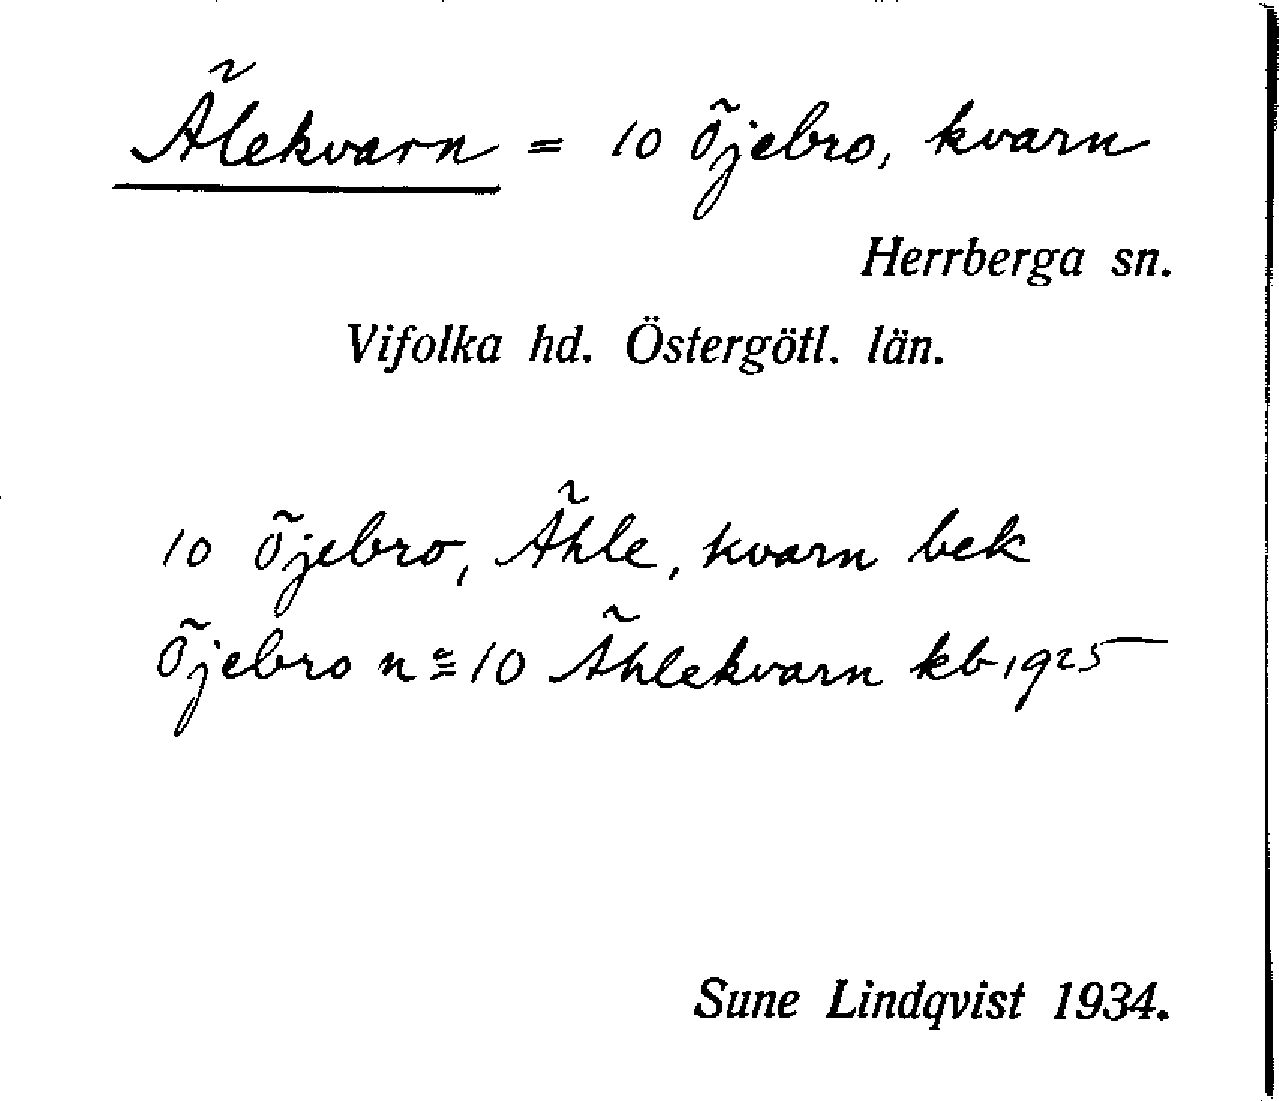 Älekvarn = 10 Öjebro, kvarn
Herrberga sn.
Vifolka hd. Östergötl. län.
10 Öjebro, Ähle, kvarn bek
Öjebro n≌10 Ählekvarn kb 1925
Sune Lindqvist 1934.